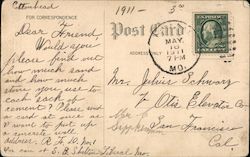 Cottonhead
1911 - 3⁰⁰
FOR CORRESPONDENCE
Post Card
ADDRESS ONLY
MAY
18
1911
7 PM
MO.
Dear Friend,
Would you
please find out
how much sand
and how much
stone you use to
each sack of
cement? Please send
us card at once as
we want to put up
a concrete wall
Address. R.F.D. No 1
in care of E. B. Shelton Liberal Mo.
Mr. Julius Schwarz
% Otis Elevator Co.
San Francisco
Cal.